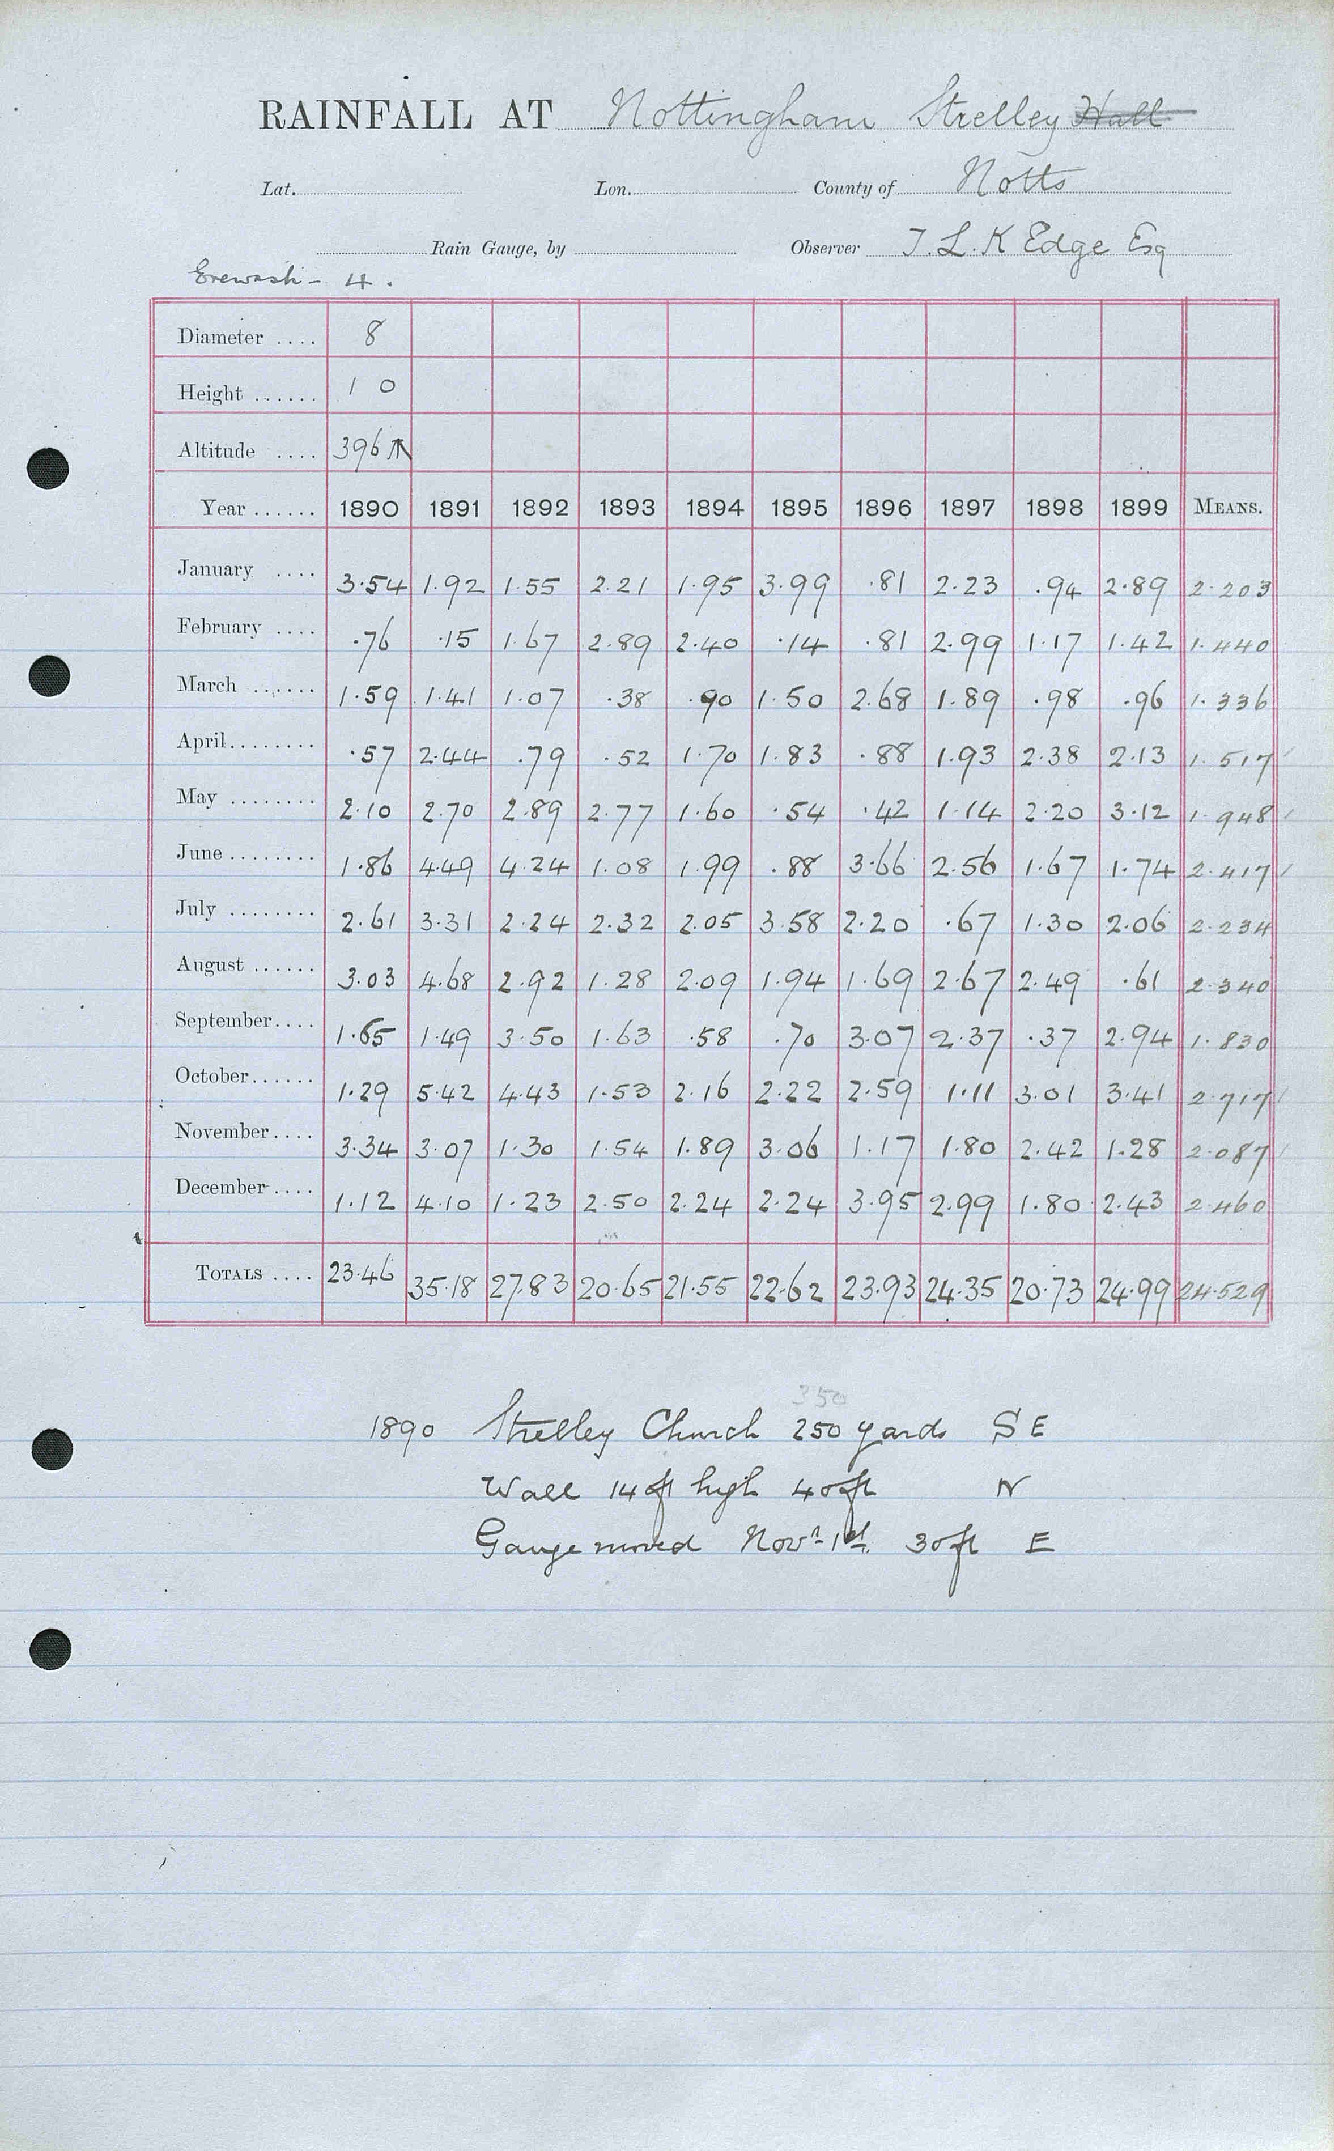 RAINFALL AT Nottingham Strelley Hall
Lat. Lon. County of Notts
Rain Gauge, by Observer T. L. K Edge Esq
Erewash - 4.
Diameter .... 8
Height ...... 1 0
Altitude .... 396
Year ...... 1890 1891 1892 1893 1894 1895 1896 1897 1898 1899 MEANS.
January .... 3.54 1.92 1.55 2.21 1.95 3.99 .81 2.23 .94 2.89 2.203
February .... .76 .15 1.67 2.89 2.40 .14 .81 2.99 1.17 1.42 1.440
March ...... 1.59 1.41 1.07 .38 .90 1.50 2.68 1.89 .98 .96 1.336
April........ .57 2.44 .79 .52 1.70 1.83 .88 1.93 2.38 2.13 1.517
May ........ 2.10 2.70 2.89 2.77 1.60 .54 .42 1.14 2.20 3.12 1.948
June........ 1.86 4.49 4.24 1.08 1.99 .88 3.66 2.56 1.67 1.74 2.417
July ........ 2.61 3.31 2.24 2.32 2.05 3.58 2.20 .67 1.30 2.06 2.234
August ...... 3.03 4.68 2.92 1.28 2.09 1.94 1.69 2.67 2.49 .61 2.340
September.... 1.65 1.49 3.50 1.63 .58 .70 3.07 2.37 .37 2.94 1.830
October...... 1.29 5.42 4.43 1.53 2.16 2.22 2.59 1.11 3.01 3.41 2.717
November.... 3.34 3.07 1.30 1.54 1.89 3.06 1.17 1.80 2.42 1.28 2.087
December.... 1.12 4.10 1.23 2.50 2.24 2.24 3.95 2.99 1.80 2.43 2.460
TOTALS .... 23.46 35.18 27.83 20.65 21.55 22.62 23.93 24.35 20.73 24.99 24.529
350
1890 Strelley Church 250 yards S E
Wall 14 ft high 40 ft N
Gauge moved Novr 1st. 30 ft E